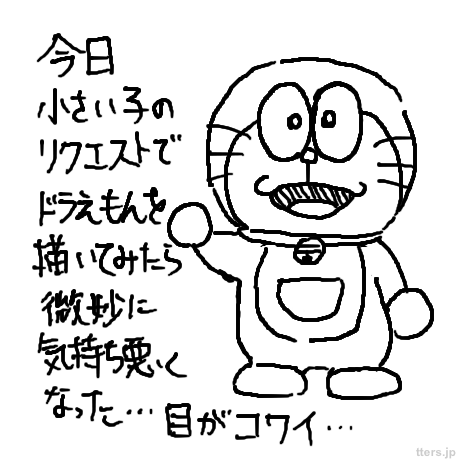 今日
小さい子の
リクエストで
ドラえもんを
描いてみたら
微妙に
気持ち悪く
なった…
目がコワイ…
tters.jp